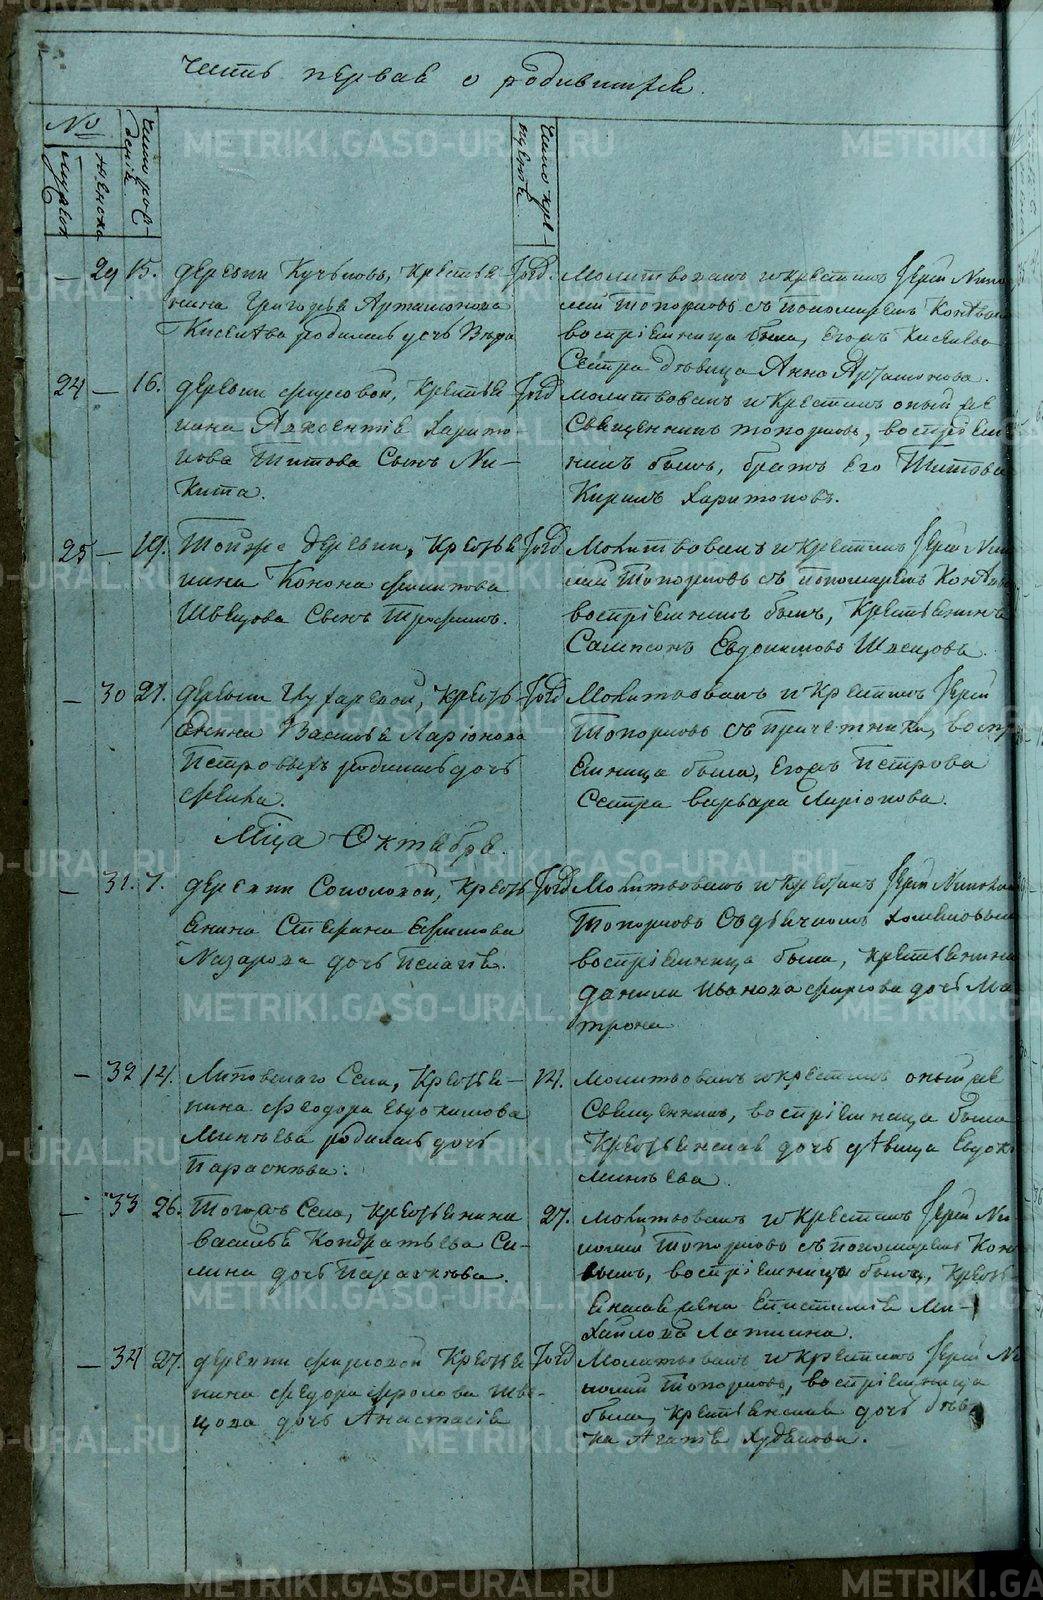 Часть первая о родившихся.
№
мужеск
женска
число рож-
денія
число кре-
щенія
— 29 15. деревни Кучковъ, крестья
нина Григорья Артамонова
Киселѣва родилась дочь Вѣра
молитвовалъ и крестилъ Іерей Нико
лай Топорковъ съ пономаремъ
воспріемница была, Егожъ Киселева
Сестра дѣвица Анна Артамонова.
24 — 16. деревни Фирсовой, крестья
нина Авксентія Харито-
нова Титова Сынъ Ни-
кита.
молитвовалъ и крестилъ оный же
Священникъ Топорковъ, воспріем-
никъ былъ, братъ его Титова
Кирилъ Харитоновъ.
25 — 19. Тойже деревни, крестья
нина Конона Филипова
Швецова Сынъ Трофимъ.
Молитвовалъ и крестилъ Іерей Ни
лай Топорковъ съ пономаремъ
воспріемникъ былъ, крестьянинъ
Сампсонъ Евдокимовъ Швецовъ.
— 30 21. деревни крестья-
янина Василья Ларіонова
Петровыхъ родилась дочь
Фекла.
Молитвовалъ и крестилъ Іерей
Топорковъ съ причетники, воспр
емница была, Егожъ Петрова
Сестра Варвара Ларіонова.
Мца Октября.
— 31. 7. деревни Соколовой, крестья
янина Спирина Ефимова
Назарова дочь Пелагія.
Молитвовалъ и крестилъ Іерей Николай
Топорковъ съ дьячкомъ
воспріемница была, крестьянина
данила Иванова Фирсова дочь Ма
трона
— 32 14. Липовскаго Села, крестья-
нина Феодора Евдокимова
Минѣева родилась дочь
Параскѣва.
14. молитвовалъ и крестилъ оный же
Священникъ, воспріемница была
Крестьянская дочь дѣвица Евдок
Минѣева.
— 33 26. Тогожъ Села, крестьянина
Василья Кондратьева Си-
лина дочь Параскѣва.
27. молитвовалъ и крестилъ Іерей Ни
колай Топорковъ съ пономаремъ Кон
вымъ, воспріемница была, кресть-
янская жена Епистимія Ми-
хайлова Лапшина.
— 34 27. деревни Фирсовой крестья
нина Федора Фролова Шве-
цова дочь Анастасія
Молитвовалъ и крестилъ Іерей Ни
колай Топорковъ, воспріемница
была, крестьянская дочь дѣви
ца Агапія
METRIKI.GASO-URAL.RU